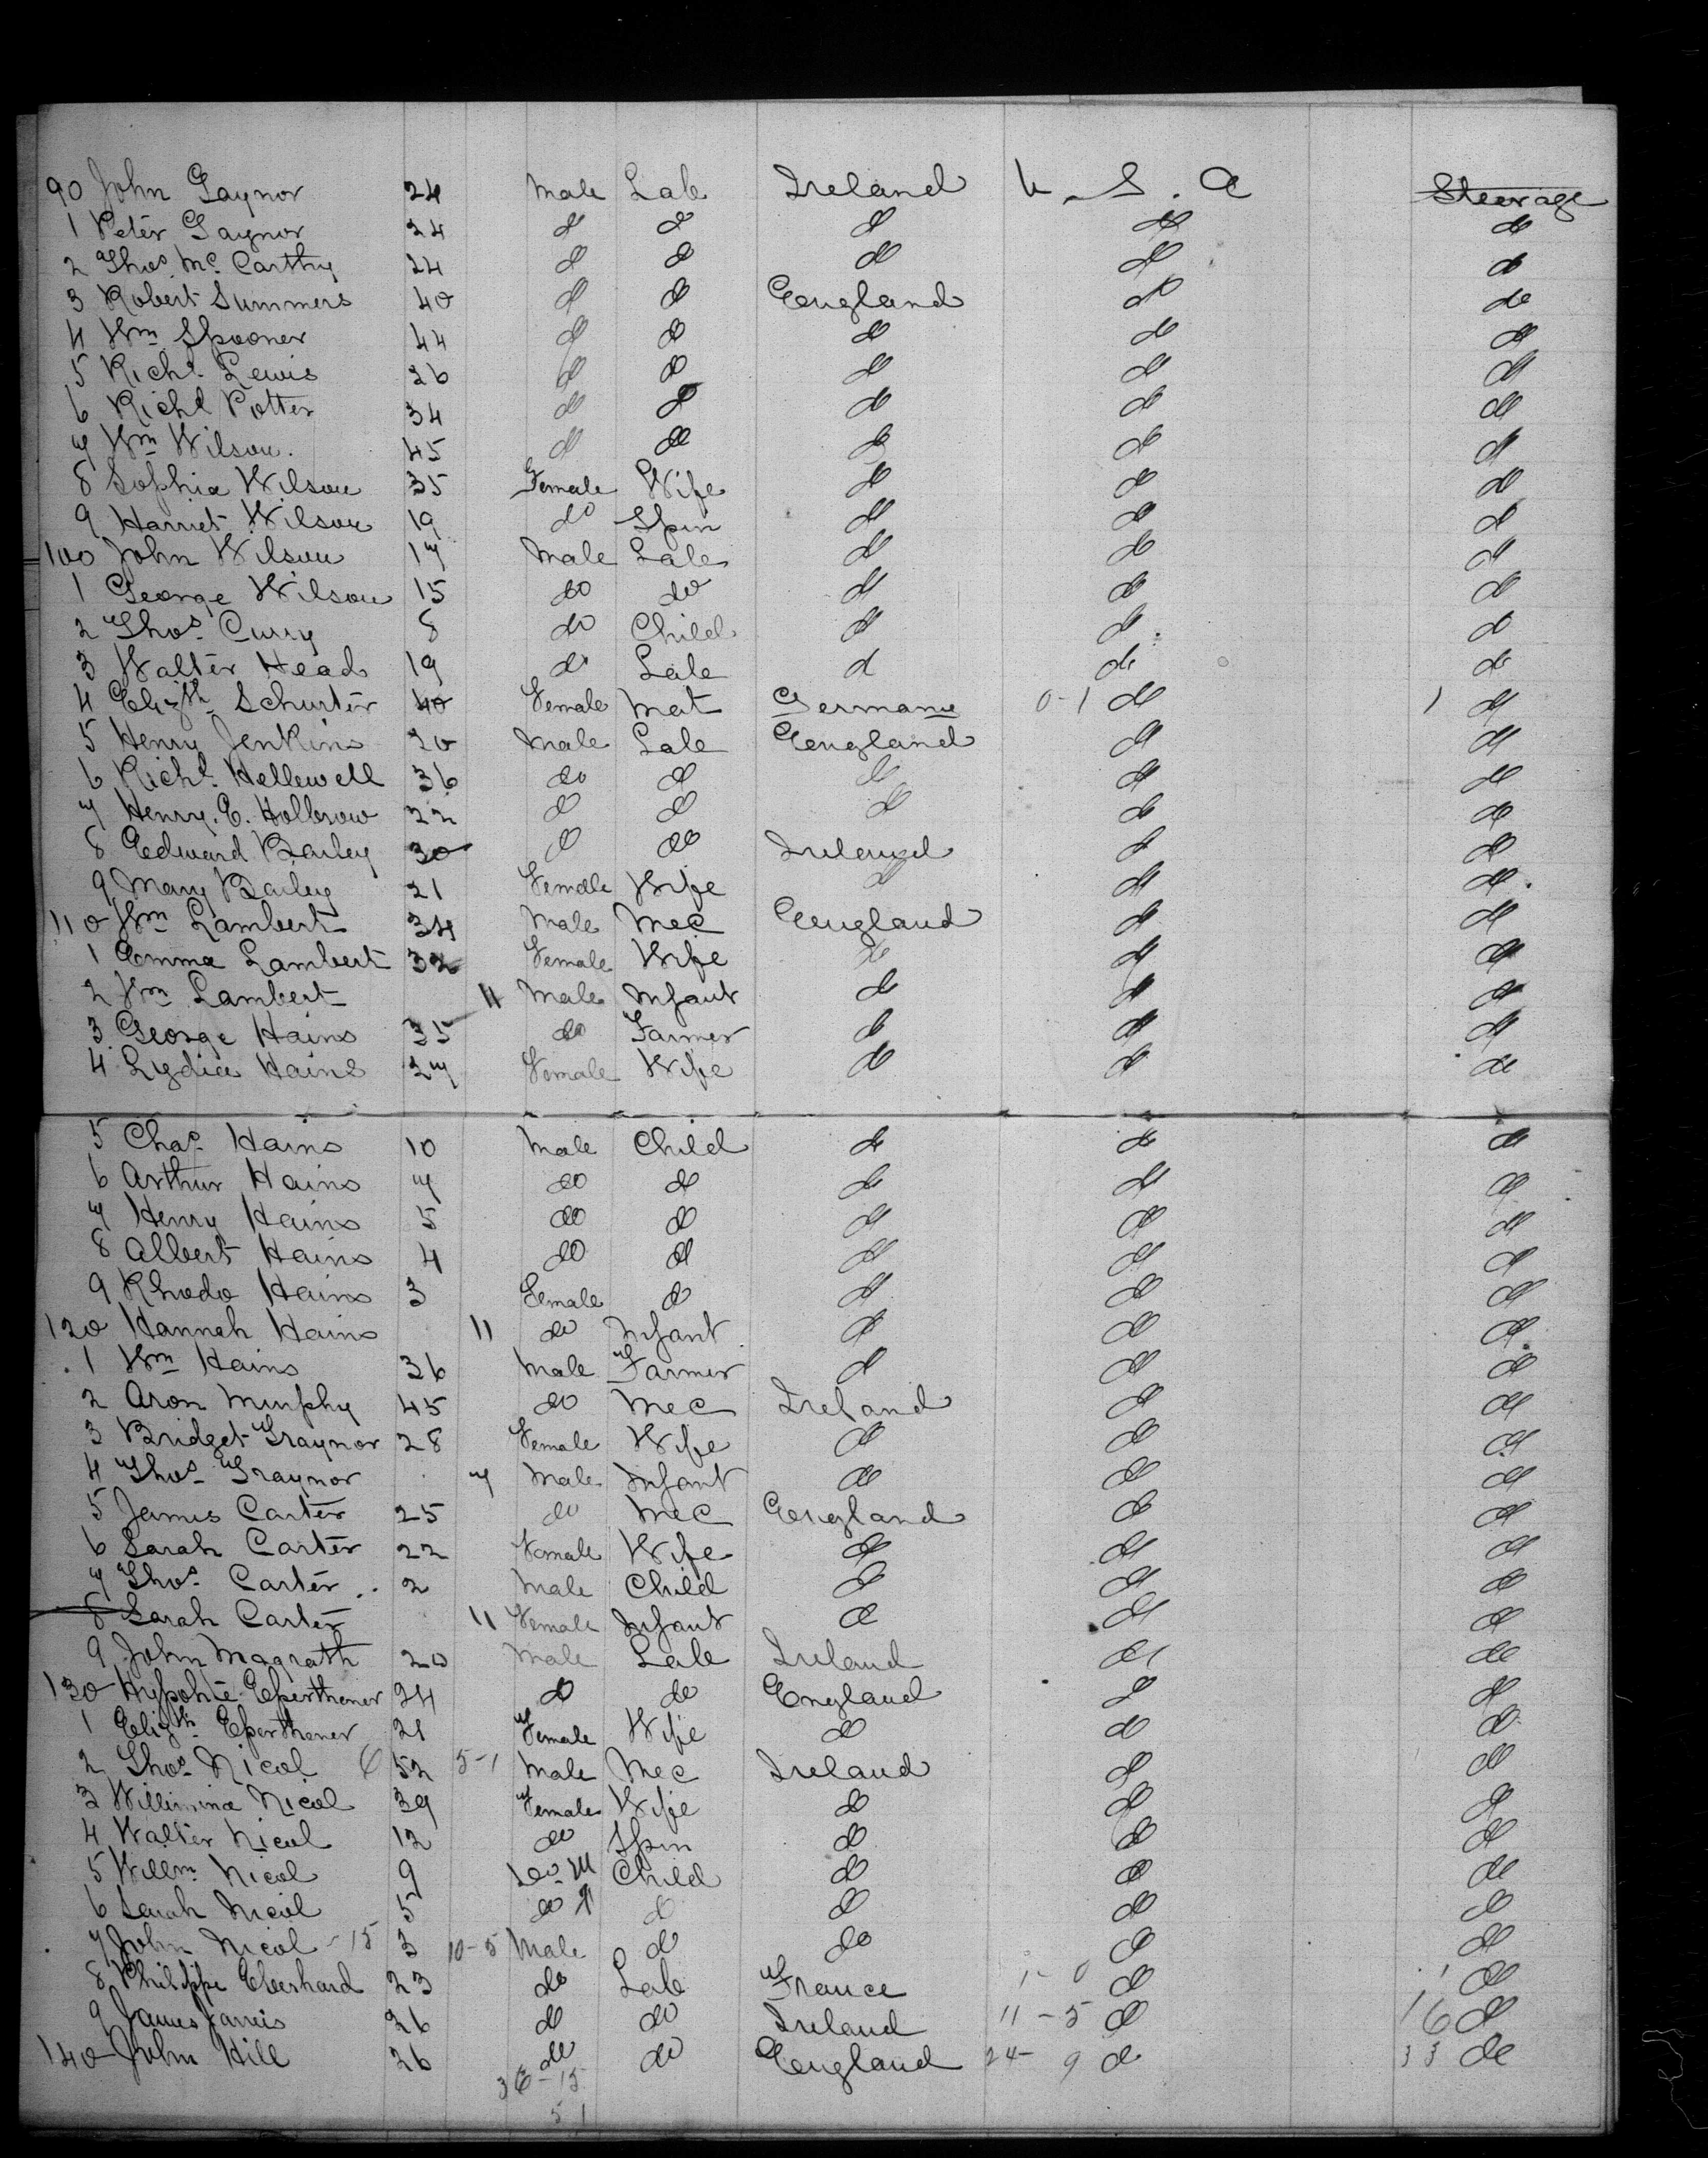 90 John Gaynor 24 Male Lab Ireland U. S. A Steerage
1 Peter Gaynor 24 do do do do do
2 Thos Mc Carthy 24 do do do do do
3 Robert Summers 40 do do England do do
4 Wm Spooner 44 do do do do do
5 Richd Lewis 26 do do do do do
6 Richd Potter 34 do do do do do
7 Wm Wilson. 45 do do do do do
8 Sophia Wilson 35 Female Wife do do do
9 Harriet Wilson 19 do Spin do do do
100 John Wilson 17 Male Lab do do do
1 George Wilson 15 do do do do do
2 Thos Curry 8 do Child do do do
3 Walter Head 19 do Lab do do do
4 Elizth Schurter 40 Female Mat Germany 0-1 do 1 do
5 Henry Jenkins 20 Male Lab England do do
6 Richd Hellewell 36 do do do do do
7 Henry. C. Holbrow 22 do do do do do
8 Edward Bailey 30 do do Ireland do do
9 Mary Bailey 21 Female Wife do do do
110 Wm Lambert 34 Male Mec England do do
1 Emma Lambert 32 Female Wife do do do
2 Wm Lambert 11 Male Infant do do do
3 George Hains 35 do Farmer do do do
4 Lydia Hains 27 Female Wife do do do
5 Chas Hains 10 Male Child do do do
6 Arthur Hains 7 do do do do do
7 Henry Hains 5 do do do do do
8 Albert Hains 4 do do do do do
9 Rhoda Hains 3 Female do do do do
120 Hannah Hains 11 do Infant do do do
1 Wm Hains 36 Male Farmer do do do
2 Aron Murphy 45 do Mec Ireland do do
3 Bridget Traynor 28 Female Wife do do do
4 Thos Traynor 7 Male Infant do do do
5 James Carter 25 do Mec England do do
6 Sarah Carter 22 Female Wife do do do
7 Thos Carter 2 Male Child do do do
8 Sarah Carter 11 Female Infant do do do
9 John Magrath 20 Male Lab Ireland do do
130 Hypolite Eperthener 24 do do England do do
1 Elizth Eperthener 21 Female Wife do do do
2 Thos Nicol 6 52 5-1 Male Mec Ireland do do
3 Willimina Nicol 39 Female Wife do do do
4 Walter Nicol 12 do Spin do do do
5 Willm Nicol 9 do M Child do do do
6 Sarah Nicol 5 do do do do do
7 John Nicol 15 3 10-5 Male do do do do
8 Philippe Eberhard 23 do Lab France 1-0 do 1 do
9 James Jarvis 26 do do Ireland 11-5 do 16 do
140 John Hill 26 do do England 24-9 do 33 do
36-15
51